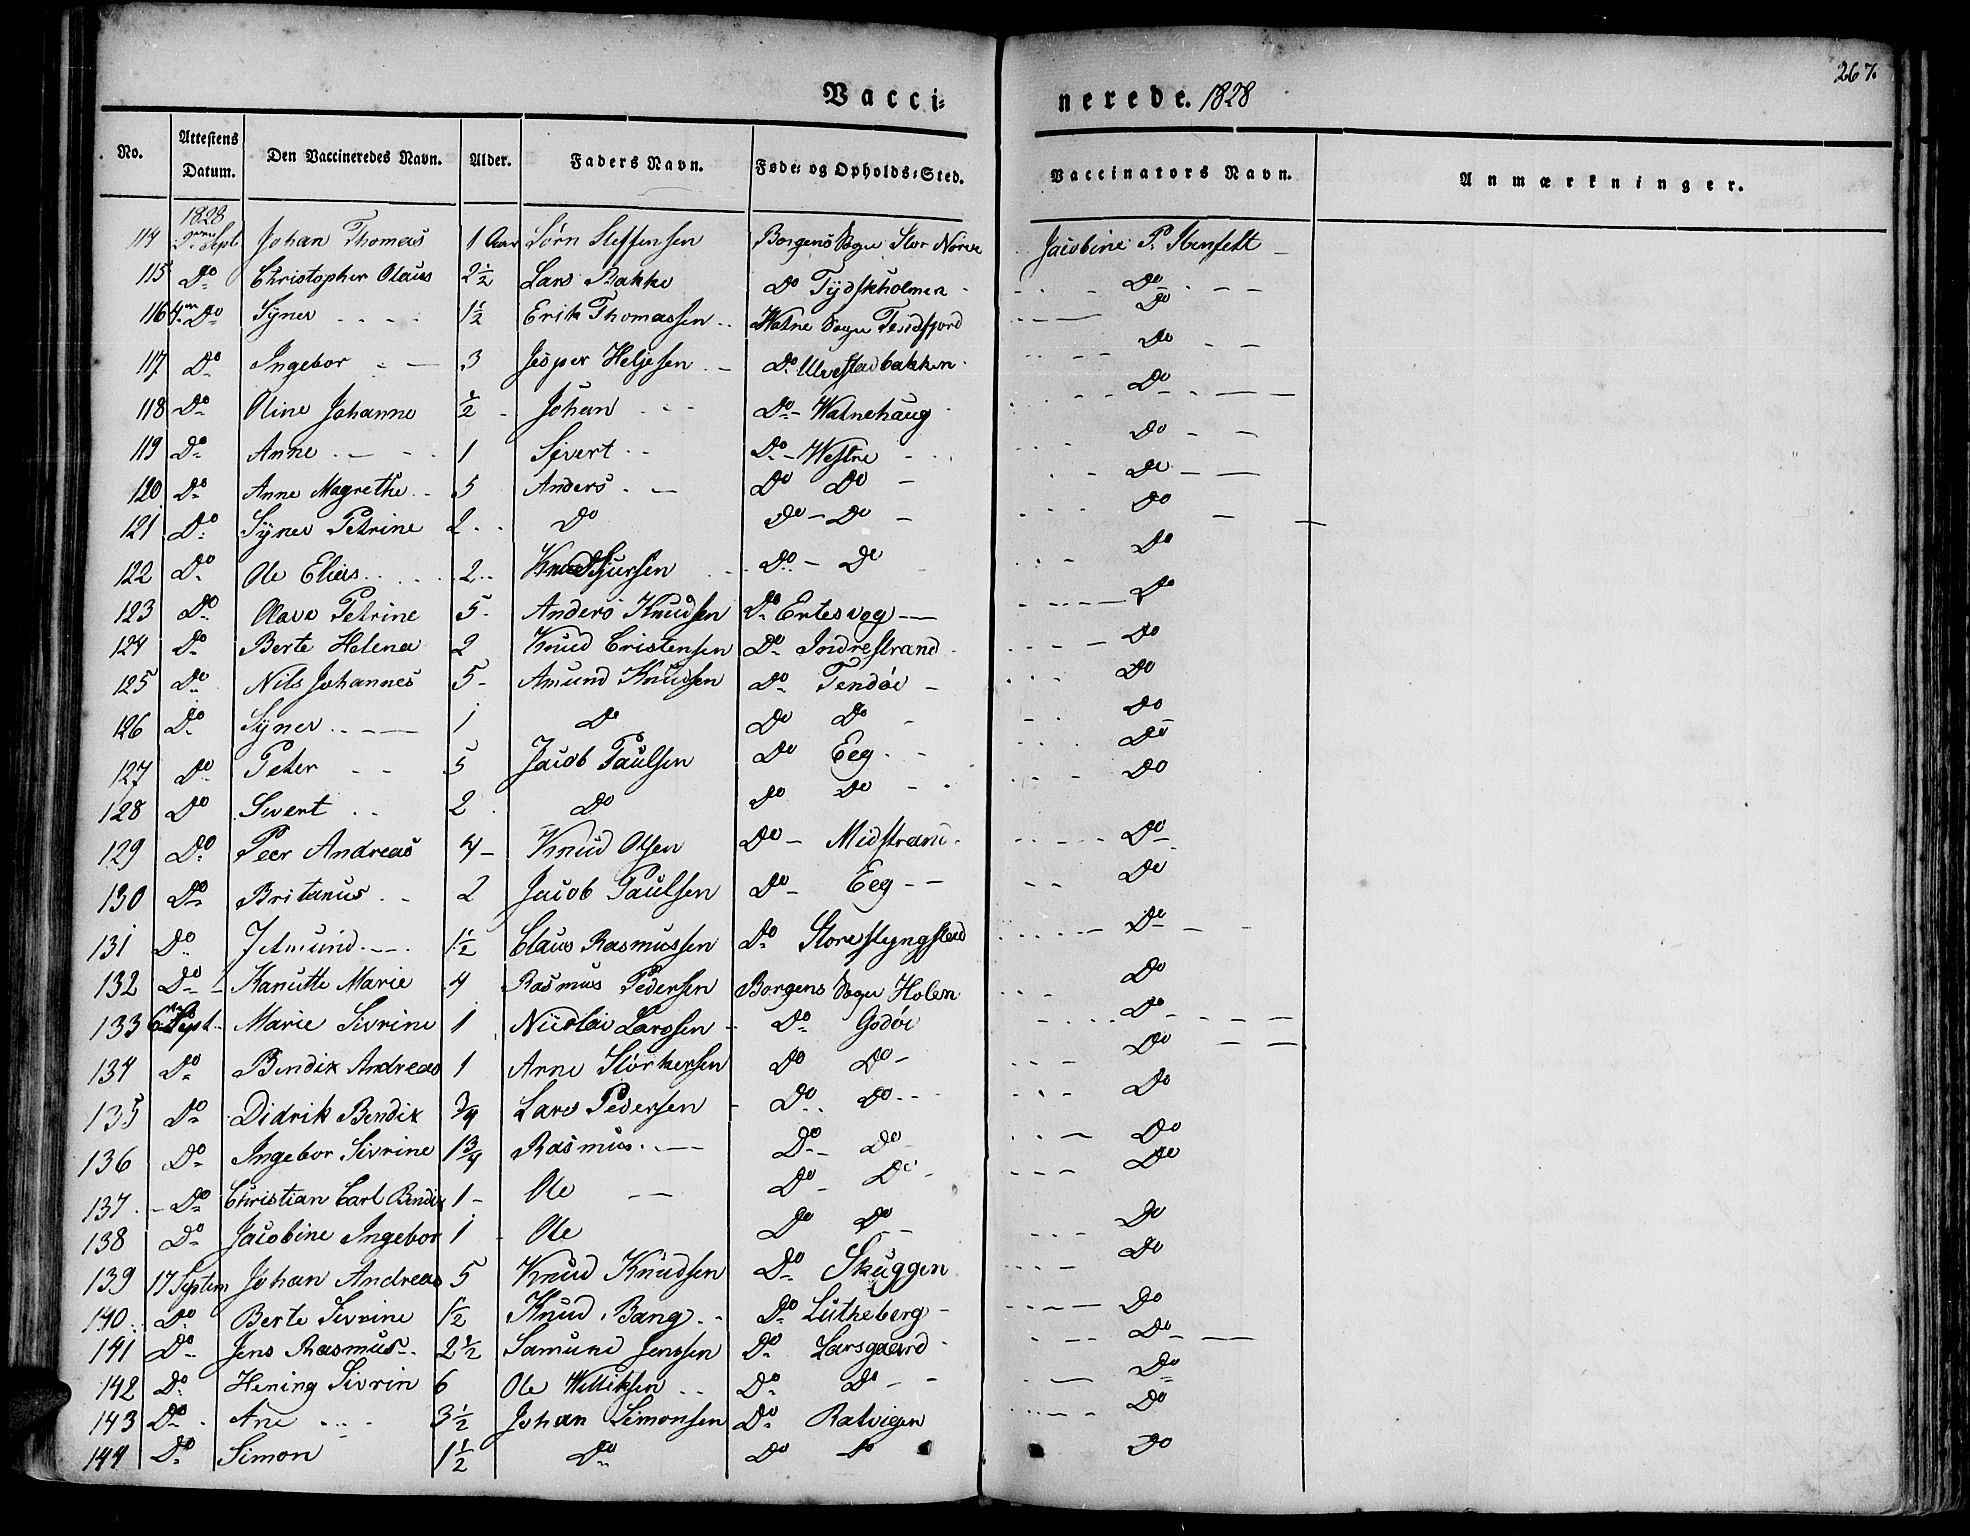 267.
Vacci= nerede. 1828
No. Attestens Datum. Den Vaccineredes Navn. Alder. Faders Navn. Føde= og Opholds=Sted. Vaccinators Navn. Anmærkninger.
1828
114 Sept Johan Thomas 1 Aar Sørn Steffensen Borgens Sogn Stor Norve Jacobine P. Stenfelt
115 Do Christopher Olaus 2½ Lars Bakke Do Tydskholmen Do
116 4 Do Synes 1½ Erik Thomassen Watne Sogn Tendfjord Do
117 Do Ingebor 3 Jesper Heljesen Do Ulvestadbakken Do
118 Do Oline Johanne ½ Johan Do Watnehaug Do
119 Do Anne 1 Sivert Do Westre Do
120 Do Anne Magrethe 5 Anders Do Do Do
121 Do Synes Petrine 2 Do Do Do Do
122 Do Ole Elias 2 Knud Sjursen Do Do Do
123 Do Olave Petrine 5 Anders Knudsen Do Entesvog Do
124 Do Berte Helena 2 Knud Cristensen Do Indrestrand Do
125 Do Nils Johannes 5 Amund Knudsen Do Tendøe Do
126 Do Synes 1 Do Do Do Do
127 Do Peter 5 Jacob Paulsen Do Eeg Do
128 Do Sivert 2 Do Do Do Do
129 Do Peer Andreas 4 Knud Olsen Do Midstrand Do
130 Do Britanus 2 Jacob Paulsen Do Eeg Do
131 Do Jetmund 1½ Claus Rasmussen Do Storeslyngstad Do
132 Do Kanutte Marie 4 Rasmus Pedersen Borgens Sogn Holen Do
133 6 Sept. Marie Sivrine 1 Nicolai Larssen Do Godøe Do
134 Do Bendix Andreas 1 Arne Størkersen Do Do Do
135 Do Didrik Bendix ¾ Lars Pedersen Do Do Do
136 Do Ingebor Sivrine 1¾ Rasmus Do Do Do
137 Do Christian Carl Bendix 1 Ole Do Do Do
138 Do Jacobine Ingebor 1 Ole Do Do Do
139 17 Septem Johan Andreas 5 Knud Knudsen Do Skuggen Do
140 Do Berte Sivrine 1½ Knud Bang Do Lutheberg Do
141 Do Jens Rasmus 2½ Samund Jenssen Do Larsgaard Do
142 Do Hening Sivrin 6 Ole Do Do Do
143 Do Ane 3½ Johan Simonsen Do Ratvigen Do
144 Do Simon 1½ Do Do Do Do